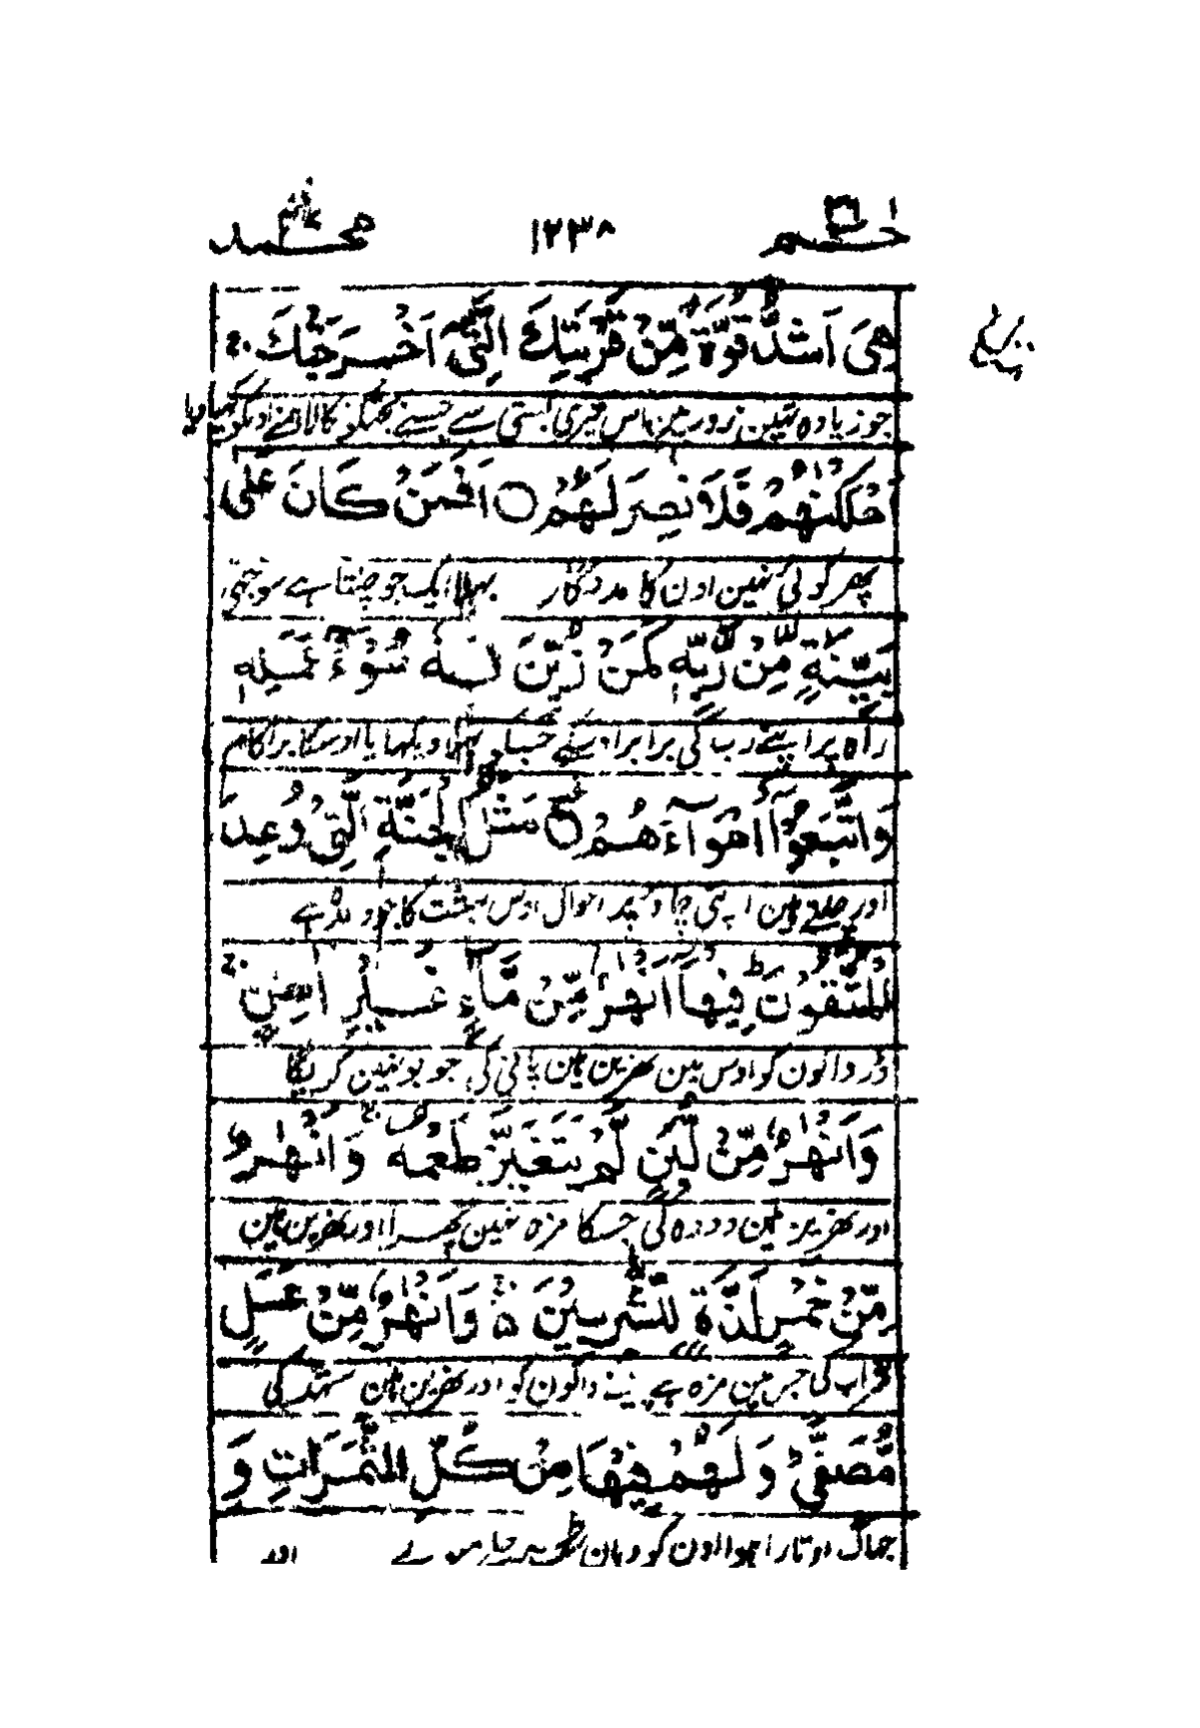 حٰم ١٢٣٨ محمد
هِيَ اَشَدُّ قُوَّةً مِّنْ قَرْيَتِكَ الَّتِيْٓ اَخْرَجَتْكَ ۚ
جو زیادہ تہین زور مین اس تیری بستی سے جسنے تجھکو نکالا ہمنے اونکو کھپا دیا
اَهْلَكْنٰهُمْ فَلَا نَاصِرَ لَهُمْ ○ اَفَمَنْ كَانَ عَلٰى
پھر کوئی نہین اون کا مددگار بہلا ایک جو چلتا ہے سوجھی
بَيِّنَةٍ مِّنْ رَّبِّهٖ كَمَنْ زُيِّنَ لَهٗ سُوْٓءُ عَمَلِهٖ
راہ پر اپنے رب کی برابر اوسکے جسکو بہلا دیکہایا اوسکا برا کام
وَاتَّبَعُوْٓا اَهْوَآءَهُمْ ○ مَثَلُ الْجَنَّةِ الَّتِيْ وُعِدَ
اور چلتے ہین اپنی چاؤ پر احوال اوس بہشت کا جو وعدہ ہے
الْمُتَّقُوْنَ ؕ فِيْهَآ اَنْهٰرٌ مِّنْ مَّآءٍ غَيْرِ اٰسِنٍ ۚ
ڈر والون کو اوس مین نہرین ہین پانی کی جو بو نہین کر گیا
وَاَنْهٰرٌ مِّنْ لَّبَنٍ لَّمْ يَتَغَيَّرْ طَعْمُهٗ ۚ وَاَنْهٰرٌ
اور نہرین ہین دودہ کی جسکا مزہ نہین پھرا اور نہرین ہین
مِّنْ خَمْرٍ لَّذَّةٍ لِّلشّٰرِبِيْنَ ۚ۬ وَاَنْهٰرٌ مِّنْ عَسَلٍ
شراب کی جس مین مزہ ہے پینے والون کو اور نہرین ہین شہد کی
مُّصَفًّى ؕ وَلَهُمْ فِيْهَا مِنْ كُلِّ الثَّمَرٰتِ وَ
جھاگ اوتارا ہوا اون کو وہان سب طرح کے میوے اور